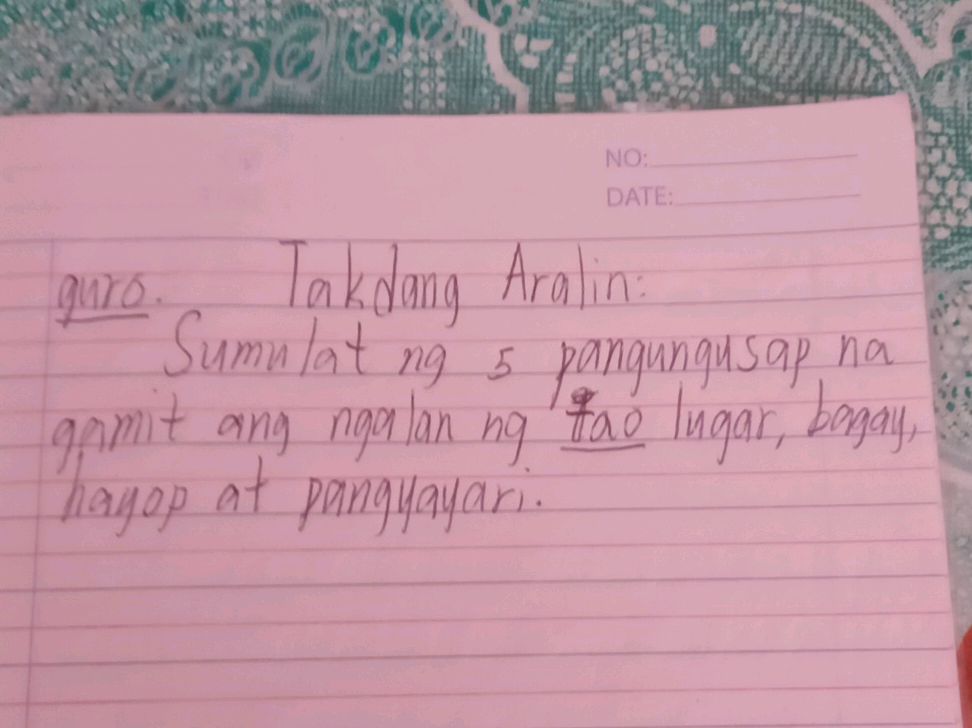 NO:
DATE:
guro. Takdang Aralin:
Sumulat ng 5 pangungusap na
gamit ang ngalan ng tao lugar, bagay,
hayop at pangyayari.